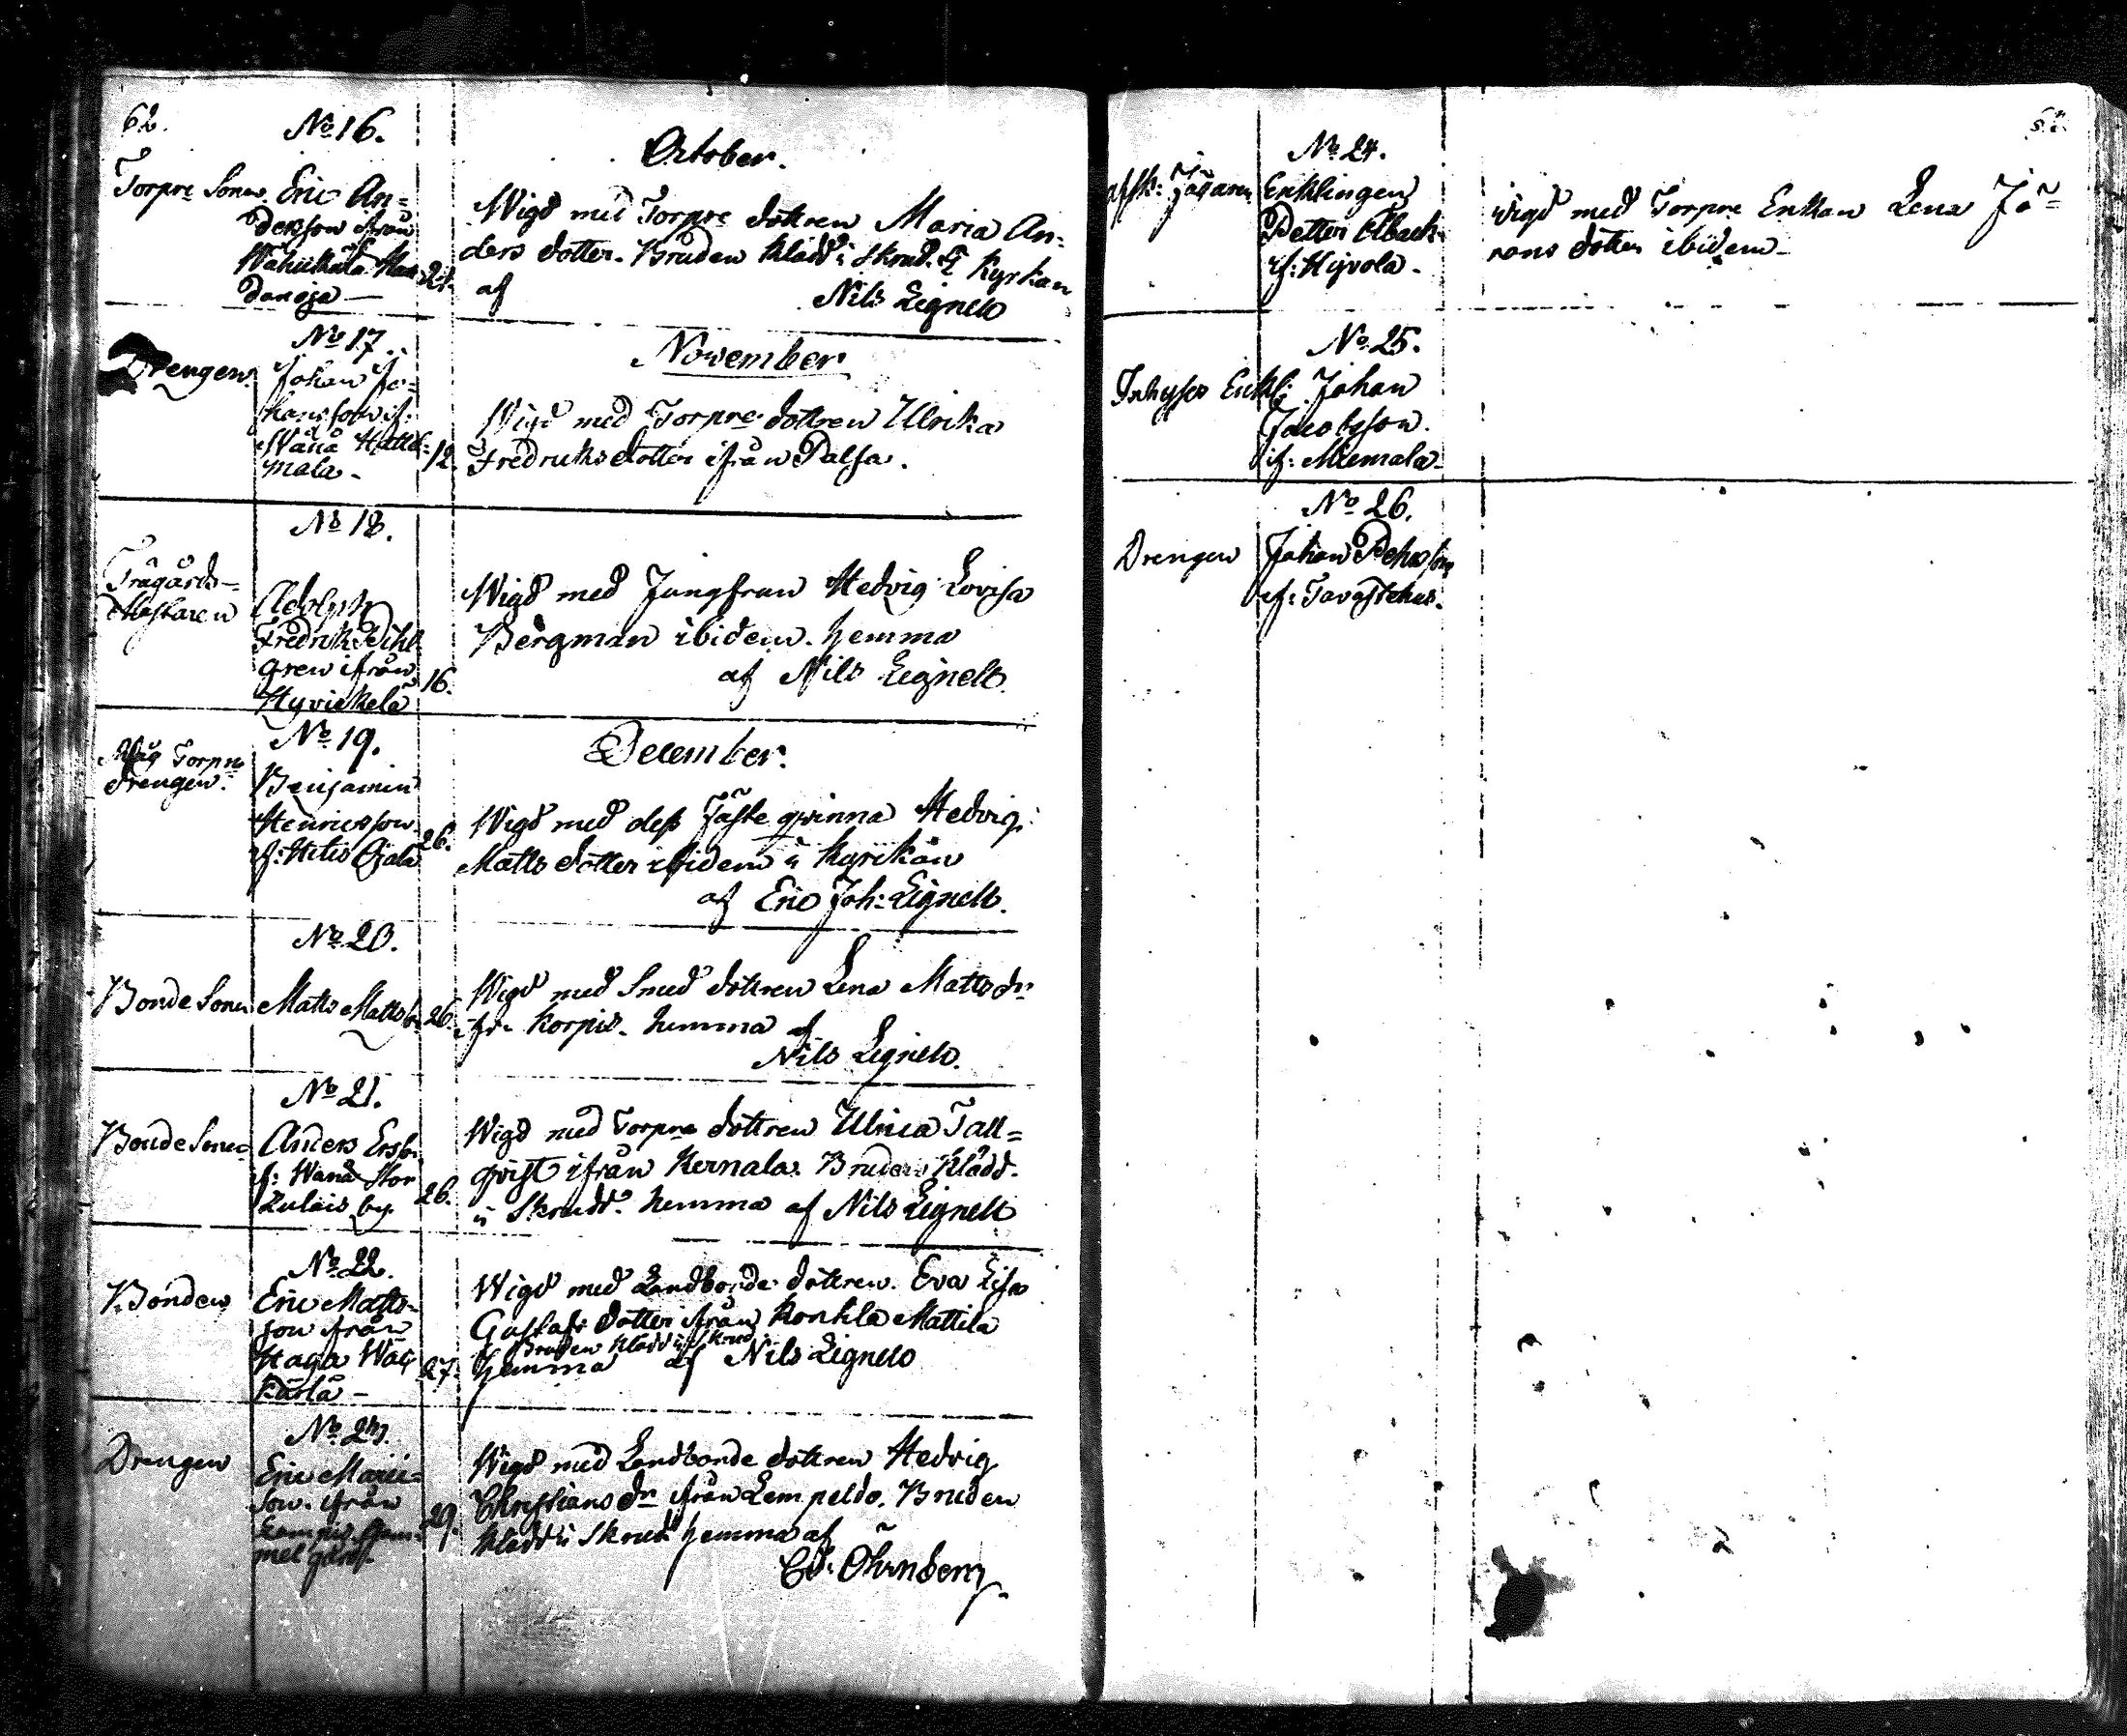 62.
No 16.
October.
Torpre Sonen Eric An=
dersson ifrån
Wahikkala
danoja — 24.
Wigd med Torpre dottren Maria An=
ders dotter. Bruden klädd i skrud. i Kyrkan
af Nils Lignell
No 17.
November
Drengen Johan Jo=
hansson if:
Wånå
mala - 12.
Wigd med Torpre dottren Ulrika
Fredriks dotter ifrån Palsa.
No 18.
Trägårds=
Mästaren
Adolph
Fredrik
gren ifrån
16.
Wigd med Jungfrun Hedvig Lovisa
Bergman ibidem. hemma
af Nils Lignell.
No 19.
December.
Måg Torpre
drengen.
Benjamin
Henricsson
if: Ojala 26.
Wigd med dess Fäste qvinna Hedvig
Matts dotter ibidem i Kyrkan
af Eric Joh: Lignell.
No 20.
Bonde Sonen Matts Matts 26.
Wigd med Smed dottren Lena Matts dr
ifr. Korpis. hemma af
Nils Lignell.
No 21.
Bonde Sonen Anders Ers
if: Wånå Stor
Lulais by. 26.
Wigd med Torpre dottren Ulrica Tall=
qvist ifrån Kernala. Bruden Klädd.
i Skrudd. hemma af Nils Lignell
No 22.
Bonden Eric Matts=
son ifrån
Haga
27.
Wigd med Landbonde dottren. Eva Lisa
Gustafs dotter ifrån Konkla Mattila
Bruden klädd i Skrud
hemma af Nils Lignell
No 23.
Drengen Eric
son. ifrån
29.
Wigd med Landbonde dottren Hedvig
Christians dr ifrån Lempeldo. Bruden
klädd i Skrud hemma af
Öhrnberg.
No 24.
Enklingen
Petter
if: Hyvola.
wigd med Torpre Enkan Lena Jö=
rans dotter ibidem
No 25.
Inhyses Enkl: Johan
Jacobsson.
if: Miemala
No 26.
Drengen Johan
if: Tavastehus.